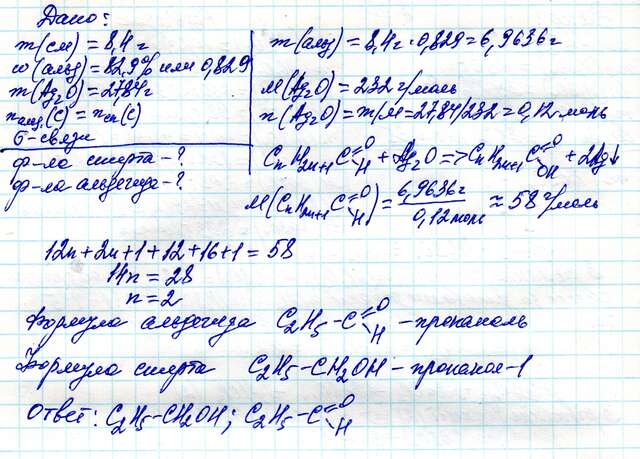 Дано:
m(см) = 8,4 г
ω(альд) = 82,9% или 0,829
m(Ag₂O) = 27,84 г
nальд.(C) = nсп(C)
σ-связи
ф-ла спирта - ?
ф-ла альдегида - ?
m(альд) = 8,4г · 0,829 = 6,9636г
M(Ag₂O) = 232 г/моль
n(Ag₂O) = m/M = 27,84/232 = 0,12 моль
CnH2n+1C=O H + Ag₂O => CnH2n+1C=O OH + 2Ag↓
M(CnH2n+1C=O H) = 6,9636г / 0,12 моль ≈ 58 г/моль
12n + 2n + 1 + 12 + 16 + 1 = 58
14n = 28
n = 2
Формула альдегида C₂H₅-C=O H - пропаналь
Формула спирта C₂H₅-CH₂OH - пропанол-1
Ответ: C₂H₅-CH₂OH; C₂H₅-C=O H